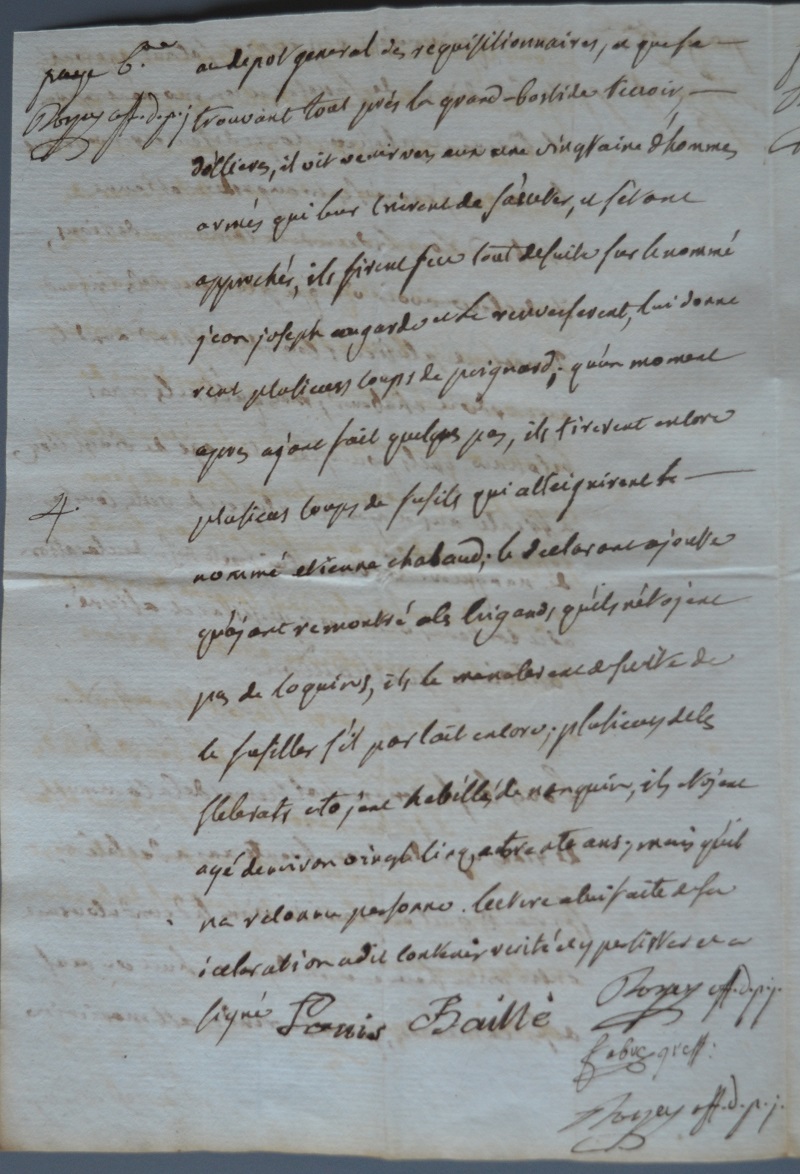 page 6.me
au depot general des requisitionnaires, et que se
off. d. p. j.
trouvant tout près la grand-bastide terroir
d'ollieres, il vit venir vers eux une vingtaine d'hommes
armés qui leur crierent de s'arreter, et s'etant
approchés, ils firent feu tout de suite sur le nommé
jean joseph augarde et le renverserent, lui donne
rent plusieurs coups de poignard; qu'un moment
apres ayant fait quelques pas, ils tirerent encore
4.
plusieurs coups de fusils qui atteignirent le
nommé etienne chabaud; le declarant ajoutte
qu'ayant remontré a les brigands qu'ils n'étojent
pas de coquins, ils le menacerent de suite de
le fusiller s'il parlait encore; plusieurs de les
scelerats etojent habillés de nanquin, ils etojent
agé d'environ vingt cinq a trente ans; mais qu'il
na reconnu personne. lecture a lui faite de sa
declaration a dit contenir verité et y persister et a
signé Louis Baille
off. d. p. j.
greff:
off. d. p. j.